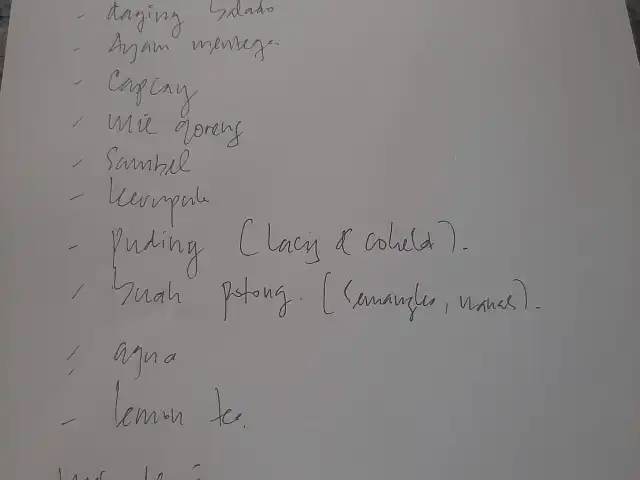 - daging balado
- Ayam mentega
- Capcay
- Mie goreng
- Sambel
- kerupuk
- Puding (Lacy & coklat).
- buah potong. (Semangka, nanas).
- aqua
- lemon tea.